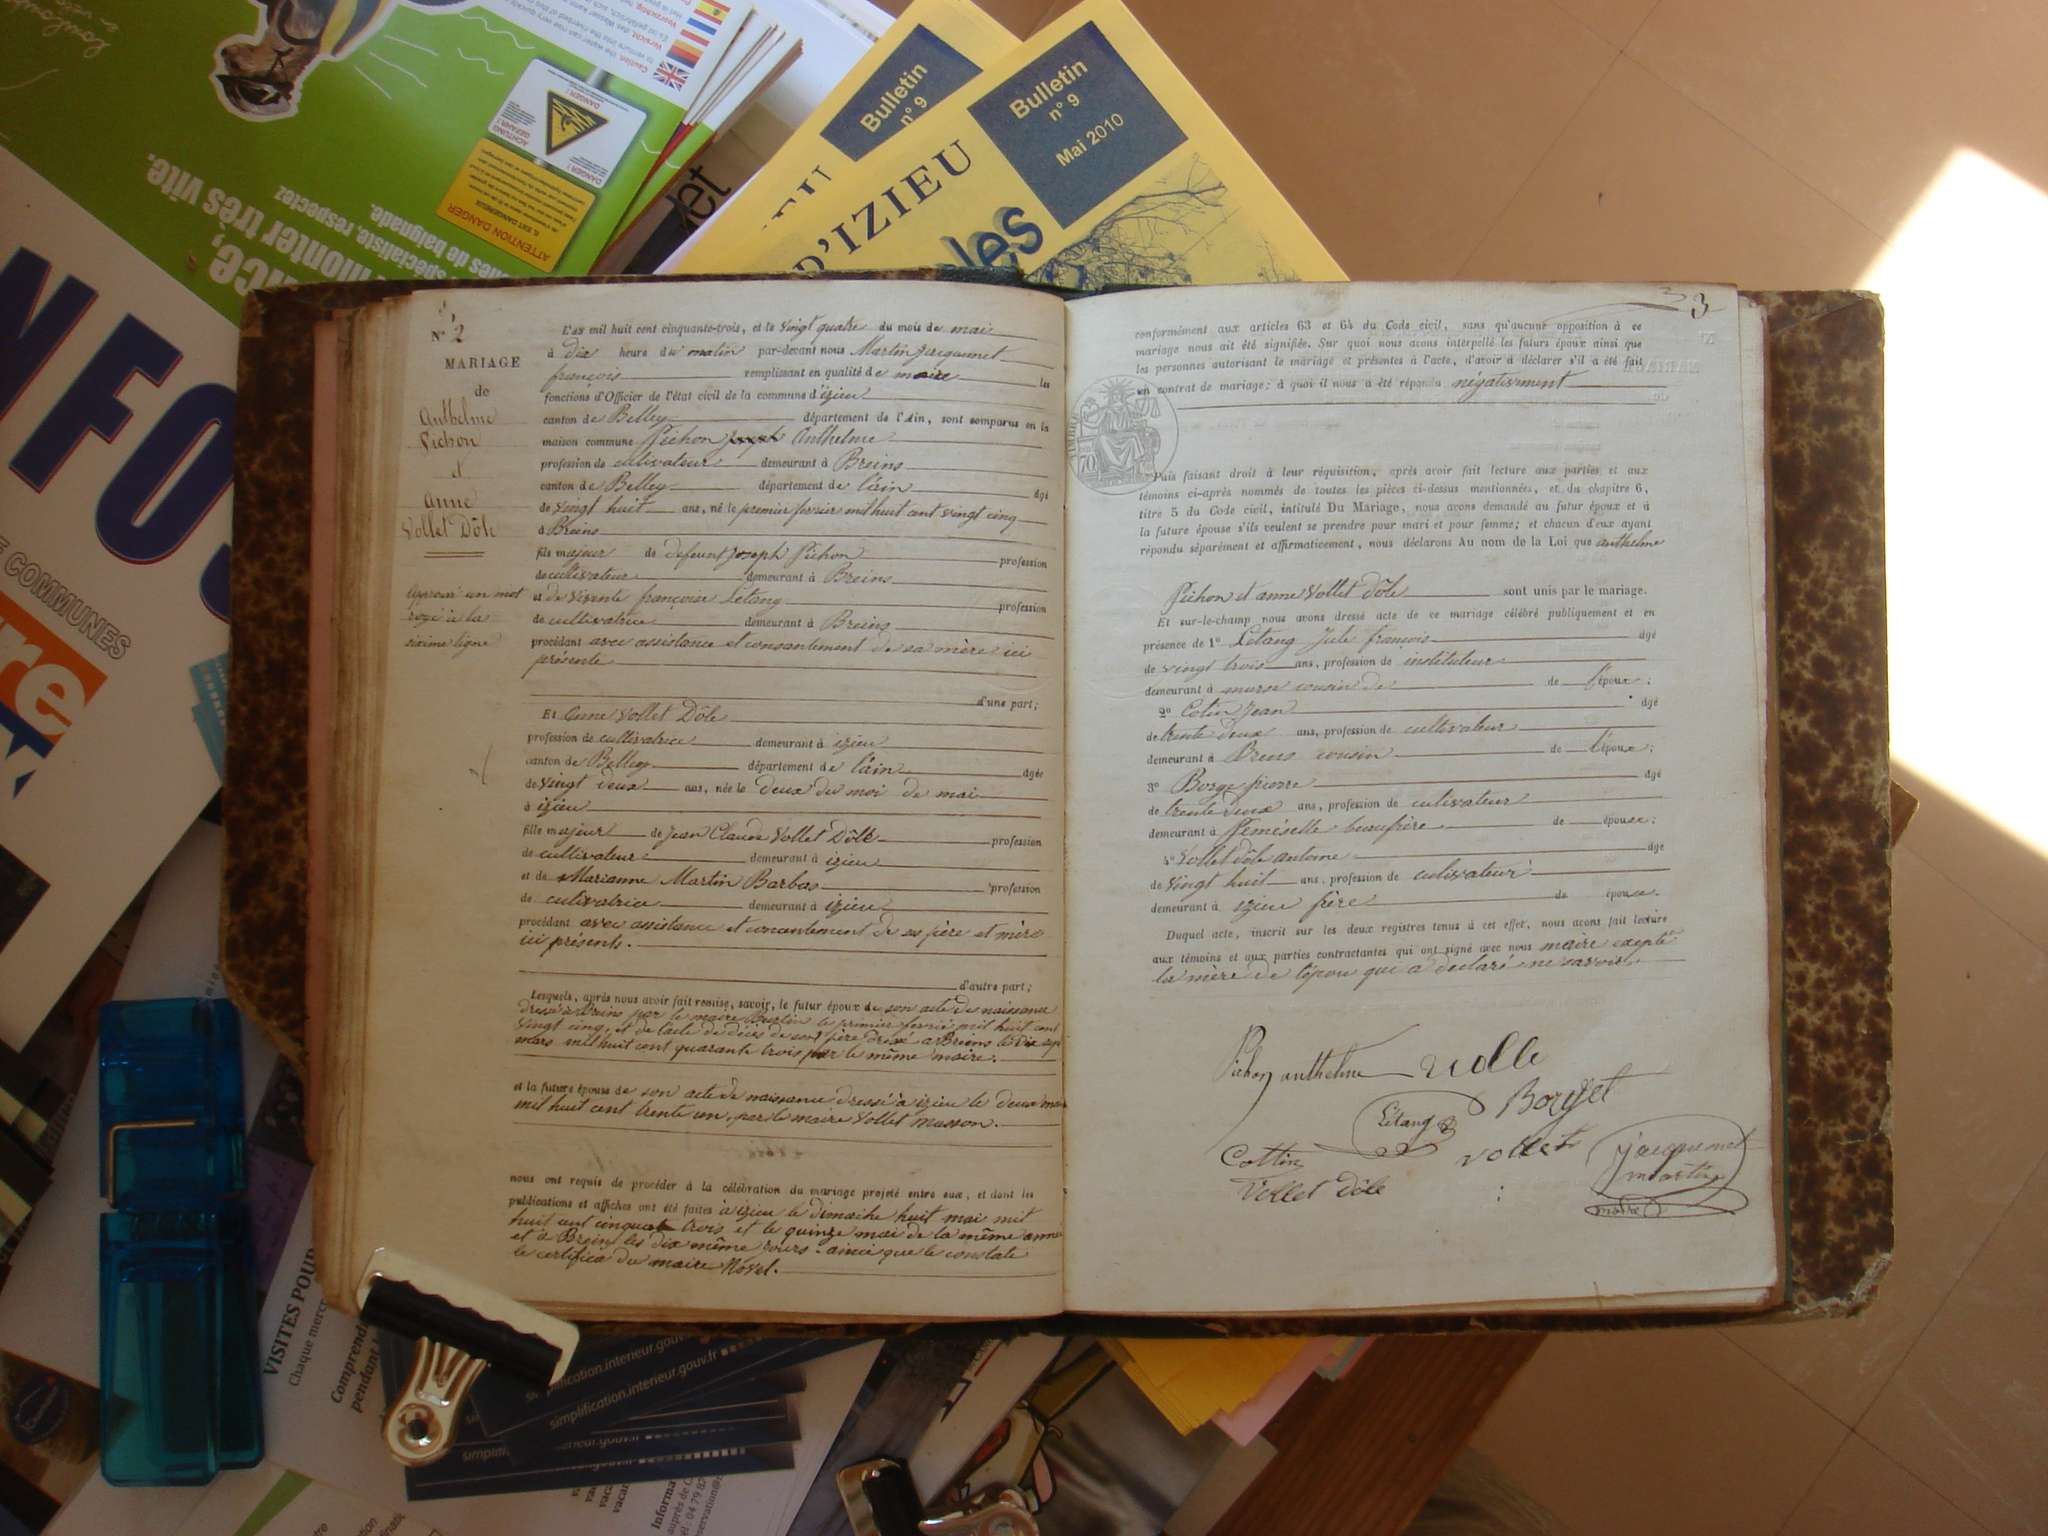 Bulletin
n° 9
Bulletin
n° 9
Mai 2010
D'IZIEU
les
ATTENTION DANGER
monter très vite.
spécialiste, respectez
nes de baignade.
COMMUNES
N° 2
MARIAGE
de
Anthelme
Pichon
et
Anne
Vollet Dôle
approuvé un mot
rayé à la
sixième ligne
L'an mil huit cent cinquante-trois, et le vingt quatre du mois de mai
à dix heure du matin par-devant nous Martin Jacquemet
françois remplissant en qualité de maire les
fonctions d'Officier de l'état civil de la commune d'izieu
canton de Belley département de l'Ain, sont comparus en la
maison commune Pichon Joseph Anthelme
profession de cultivateur demeurant à Breins
canton de Belley département de l'ain âgé
de vingt huit ans, né le premier fevrier mil huit cent vingt cinq
à Breins
fils majeur de defeunt Joseph Pichon profession
de cultivateur demeurant à Breins
et de vivente françoise Létang profession
de cultivatrice demeurant à Breins
procédant avec assistance et consantement de sa mère ici
présente
d'une part;
Et Anne Vollet Dôle
profession de cultivatrice demeurant à izieu
canton de Belley département de l'ain âgée
de vingt deux ans, née le deux du moi de mai
à izieu
fille majeur de Jean Claude Vollet Dôle profession
de cultivateur demeurant à izieu
et de Marianne Martin Barbas profession
de cultivatrice demeurant à izieu
procédant avec assistance et consantement de ses père et mère
ici présents.
d'autre part;
Lesquels, après nous avoir fait remise, savoir, le futur époux de son acte de naissance
dressé à Breins par le maire Burtin le premier fevrie mil huit cent
vingt cinq, et de l'acte de décès de son père dressé à Breins le dix sep
mars mil huit cent quarante trois par le même maire.
et la future épouse de son acte de naissance dressé à izieu le deux mai
mil huit cent trente un, par le maire Vollet masson.
nous ont requis de procéder à la célébration du mariage projeté entre eux, et dont les
publications et affiches ont été faites à izieu le dimache huit mai mil
huit cent cinquat trois et le quinze mai de la même anne
et à Brein les dix même jours. ainsi que le constate
le certifica du maire Novel.
3
conformément aux articles 63 et 64 du Code civil, sans qu'aucune opposition à ce
mariage nous ait été signifiée. Sur quoi nous avons interpellé les futurs époux ainsi que
les personnes autorisant le mariage et présentes à l'acte, d'avoir à déclarer s'il a été fait
un contrat de mariage: à quoi il nous a été répondu négativement
TIMBRE
70
Puis faisant droit à leur réquisition, après avoir fait lecture aux parties et aux
témoins ci-après nommés de toutes les pièces ci-dessus mentionnées, et du chapitre 6,
titre 5 du Code civil, intitulé Du Mariage, nous avons demandé au futur époux et à
la future épouse s'ils veulent se prendre pour mari et pour femme; et chacun d'eux ayant
répondu séparément et affirmativement, nous déclarons Au nom de la Loi que anthelme
Pichon et anne Vollet dôle sont unis par le mariage.
Et sur-le-champ nous avons dressé acte de ce mariage célébré publiquement et en
présence de 1° Létang Jule françois âgé
de vingt trois ans, profession de instituteur
demeurant à cousin de de l'époux;
2° Cotin Jean âgé
de trente deux ans, profession de cultivateur
demeurant à Brens cousin de l'époux;
3° Borge pierre âgé
de trente deux ans, profession de cultivateur
demeurant à beaufrère de épouse;
4° Vollet Dôle antoine âgé
de vingt huit ans, profession de cultivateur
demeurant à izieu frère de épouse.
Duquel acte, inscrit sur les deux registres tenus à cet effet, nous avons fait lecture
aux témoins et aux parties contractantes qui ont signé avec nous maire excepté
la mère de l'épou qui a declaré ne savoir.
Pichon anthelme Volle
Létang Borget
Cottin Vollet Jacquemet
Vollet Dôle martin
maire
VISITES POUR
Chaque merc
Comprend
pendant l
simplification.interieur.gouv.fr
simplification.interieur.gouv.fr